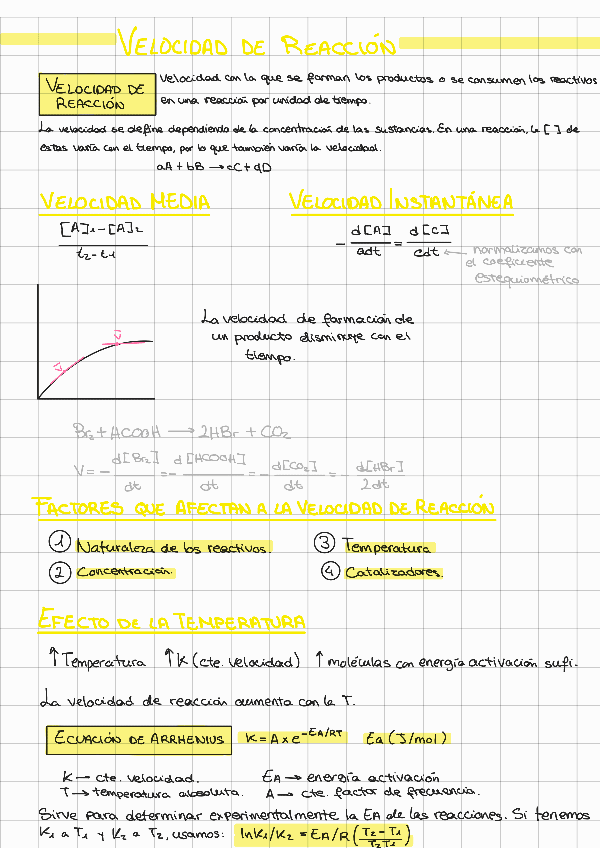 VELOCIDAD DE REACCIÓN
VELOCIDAD DE REACCIÓN
Velocidad con la que se forman los productos o se consumen los reactivos
en una reacción por unidad de tiempo.
La velocidad se define dependiendo de la concentración de las sustancias. En una reacción, la [ ] de
éstas varía con el tiempo, por lo que también varía la velocidad.
aA + bB → cC + dD
VELOCIDAD MEDIA
VELOCIDAD INSTANTÁNEA
[A]₁ - [A]₂ / t₂ - t₁
- d[A] / adt = d[C] / cdt ← normalizamos con
el coeficiente
estequiométrico
V
V
La velocidad de formación de
un producto disminuye con el
tiempo.
Br₂ + HCOOH → 2HBr + CO₂
V = - d[Br₂] / dt = - d[HCOOH] / dt = - d[CO₂] / dt = - d[HBr] / 2dt
FACTORES QUE AFECTAN A LA VELOCIDAD DE REACCIÓN
1 Naturaleza de los reactivos.
3 Temperatura
2 Concentración.
4 Catalizadores.
EFECTO DE LA TEMPERATURA
↑ Temperatura ↑ K (cte. velocidad) ↑ moléculas con energía activación sufi.
La velocidad de reacción aumenta con la T.
ECUACIÓN DE ARRHENIUS K = A x e^-EA/RT Ea (J/mol)
K → cte. velocidad. EA → energía activación
T → temperatura absoluta. A → cte. factor de frecuencia.
Sirve para determinar experimentalmente la EA de las reacciones. Si tenemos
K₁ a T₁ y K₂ a T₂, usamos: lnK₁/K₂ = EA/R (T₂ - T₁ / T₂T₁)